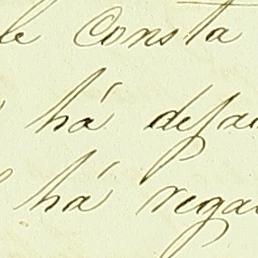 le Consta
há defa
há rega